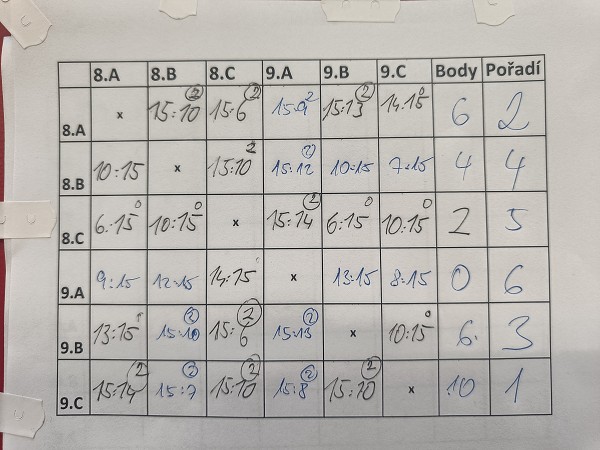 8.A 8.B 8.C 9.A 9.B 9.C Body Pořadí
8.A x 15:10 2 15:6 2 15:9 2 15:13 2 14:15 0 6 2
8.B 10:15 x 15:10 2 15:12 2 10:15 7:15 4 4
8.C 6:15 0 10:15 0 x 15:14 2 6:15 0 10:15 0 2 5
9.A 9:15 12:15 14:15 x 13:15 8:15 0 6
9.B 13:15 15:10 2 15:6 2 15:13 2 x 10:15 0 6. 3
9.C 15:14 2 15:7 2 15:10 2 15:8 2 15:10 2 x 10 1